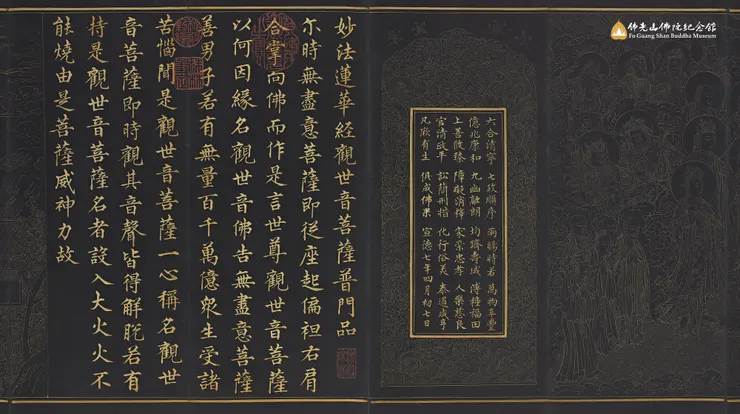 佛光山佛陀紀念館
Fo Guang Shan Buddha Museum
六合清寧 七政順序 雨暘時若 萬物阜豐
億兆康和 九幽融朗 均躋壽域 溥種福田
上善攸臻 障礙消釋 家崇忠孝 人樂慈良
官清政平 訟簡刑措 化行俗美 泰道咸亨
凡厥有生 俱成佛果 宣德七年四月初七日
妙法蓮華經觀世音菩薩普門品
尒時無盡意菩薩即從座起偏袒右肩
合掌向佛而作是言世尊觀世音菩薩
以何因緣名觀世音佛告無盡意菩薩
善男子若有無量百千萬億眾生受諸
苦惱聞是觀世音菩薩一心稱名觀世
音菩薩即時觀其音聲皆得解脫若有
持是觀世音菩薩名者設入大火火不
能燒由是菩薩威神力故